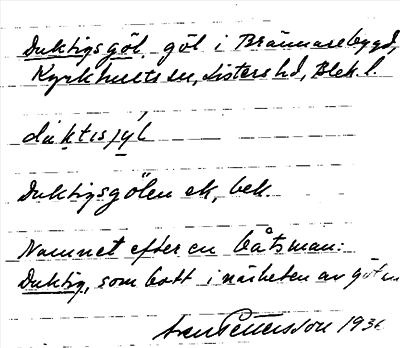 Duktigsgöl, göl i Brännarebygd,
Kyrkhults sn, Listers hd, Blek. l.
dúktısjy̱l
Duktigsgölen ek, bek.
Namnet efter en båtsman:
Duktig, som bott i närheten av göln
Sven Pettersson 193